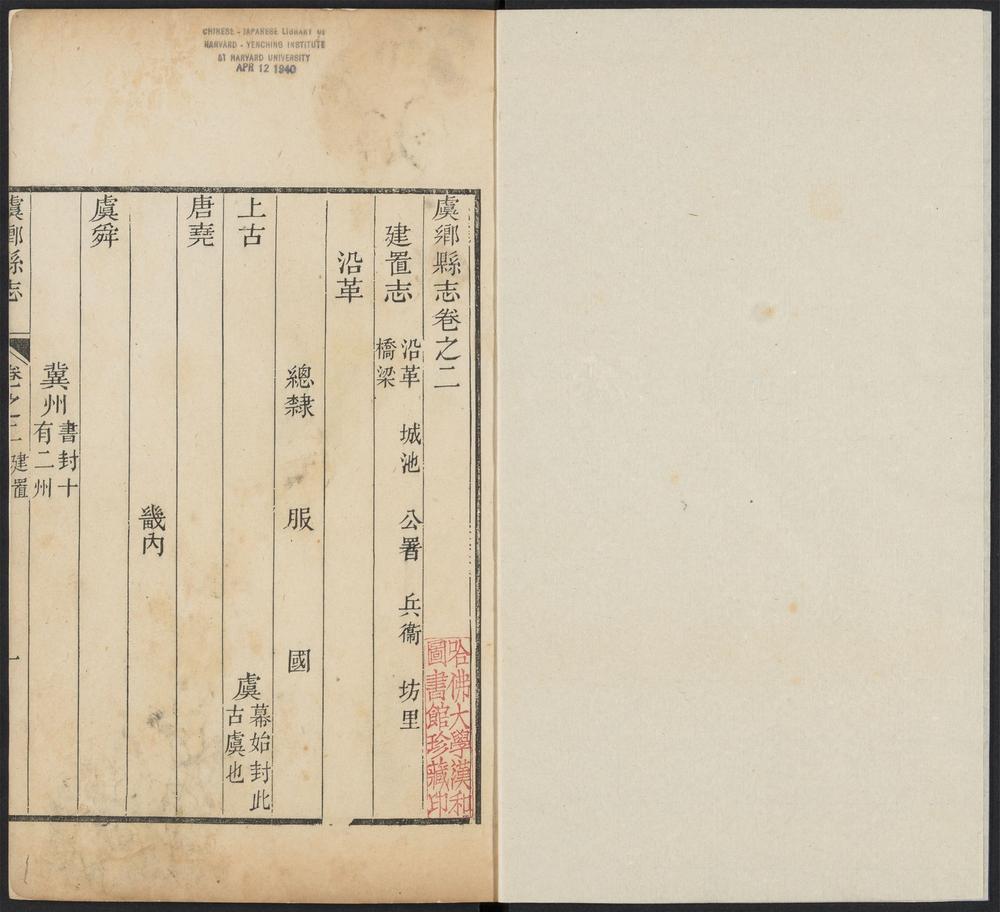 CHINESE - JAPANESE LIBRARY OF
HARVARD - YENCHING INSTITUTE
AT HARVARD UNIVERSITY
APR 12 1940
虞鄉縣志卷之二
建置志 沿革 城池 公署 兵衞 坊里
橋梁
沿革
總隸 服 國
上古 虞 幕始封此
古虞也
唐堯
畿內
虞舜
冀州 書封十
有二州
虞鄉縣志 卷之二 建置 一
哈佛大學漢和
圖書館珍藏印